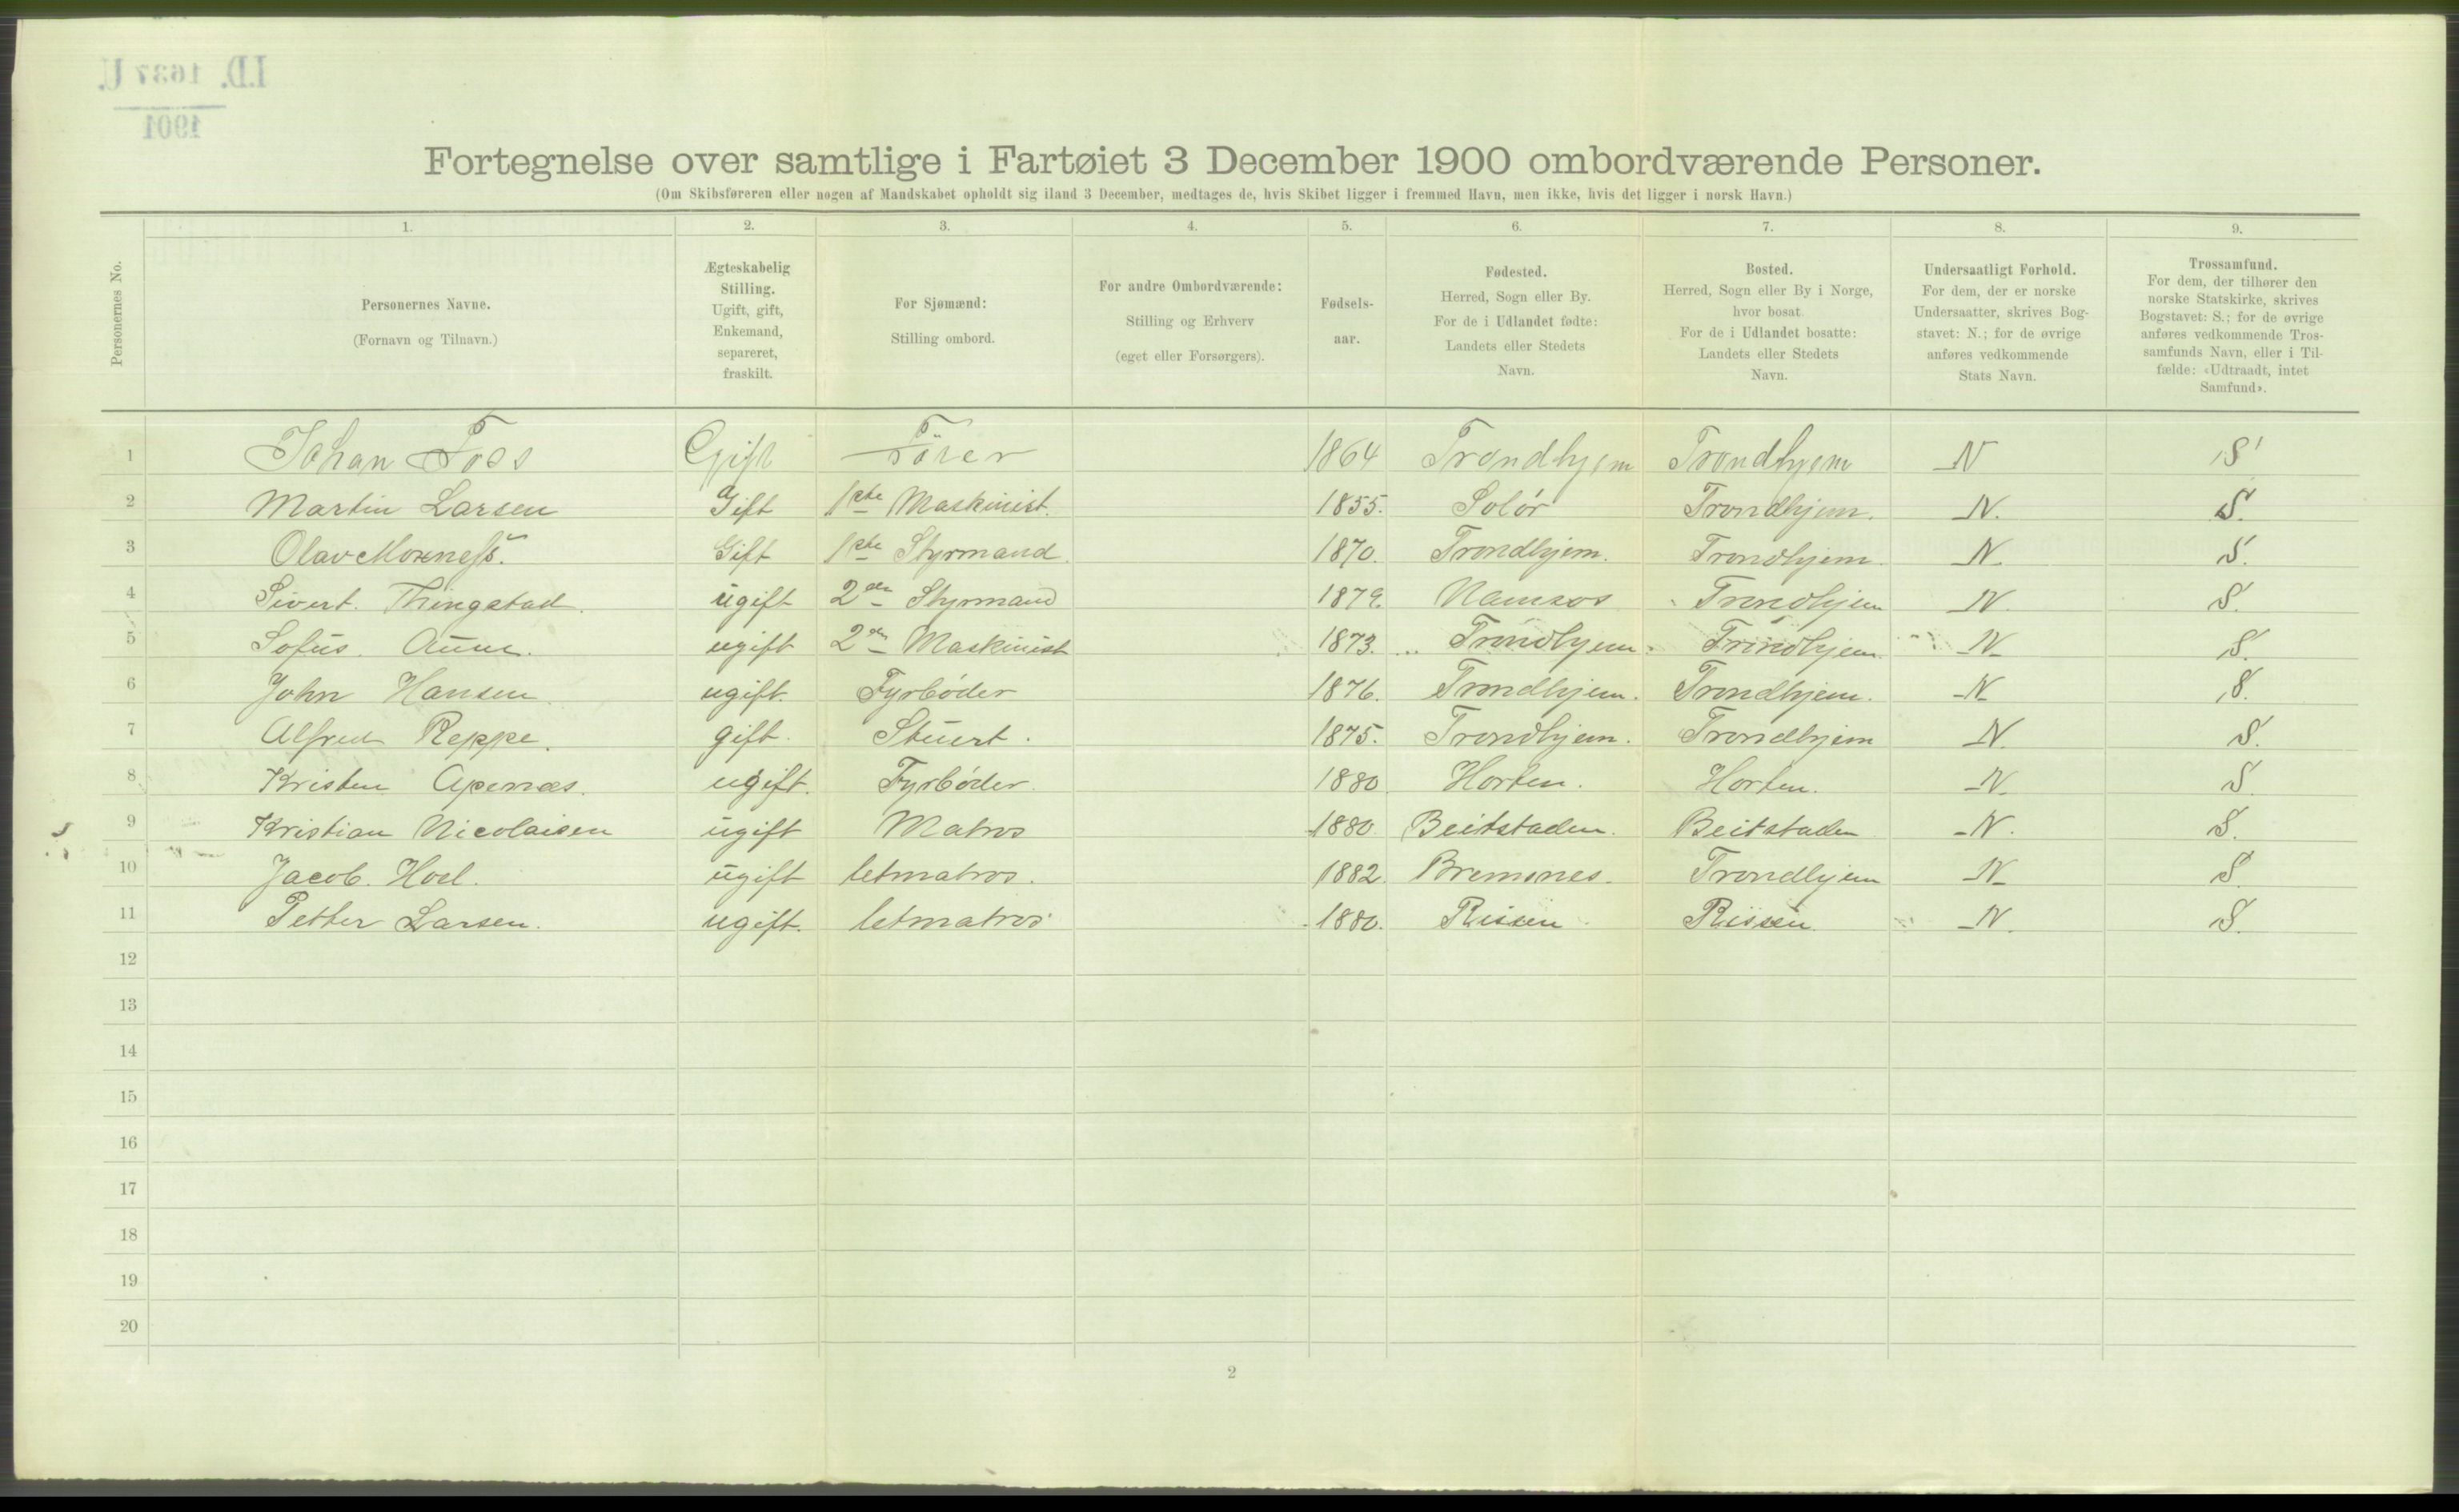 I.D. 1637 U.
1901
Fortegnelse over samtlige i Fartøiet 3 December 1900 ombordværende Personer.
(Om Skibsføreren eller nogen af Mandskabet opholdt sig iland 3 December, medtages de, hvis Skibet ligger i fremmed Havn, men ikke, hvis det ligger i norsk Havn.)
Personernes No.
1.
Personernes Navne.
(Fornavn og Tilnavn.)
2.
Ægteskabelig
Stilling.
Ugift, gift,
Enkemand,
separeret,
fraskilt.
3.
For Sjømænd:
Stilling ombord.
4.
For andre Ombordværende:
Stilling og Erhverv
(eget eller Forsørgers).
5.
Fødsels-
aar.
6.
Fødested.
Herred, Sogn eller By.
For de i Udlandet fødte:
Landets eller Stedets
Navn.
7.
Bosted.
Herred, Sogn eller By i Norge,
hvor bosat.
For de i Udlandet bosatte:
Landets eller Stedets
Navn.
8.
Undersaatligt Forhold.
For dem, der er norske
Undersaatter, skrives Bog-
stavet: N.; for de øvrige
anføres vedkommende
Stats Navn.
9.
Trossamfund.
For dem, der tilhører den
norske Statskirke, skrives
Bogstavet: S.; for de øvrige
anføres vedkommende Tros-
samfunds Navn, eller i Til-
fælde: «Udtraadt, intet
Samfund».
1 Johan Foss Gift Förer 1864 Trondhjem Trondhjem N S
2 Martin Larsen Gift 1ste Maskinist. 1855. Solør Trondhjem. N. S.
3 Olav Moxness. Gift 1ste Styrmand. 1870. Trondhjem. Trondhjem. N. S.
4 Sivert. Thingstad. ugift 2den Styrmand 1879. Namsos Trondhjem N. S.
5 Sofus. Aune. ugift 2den Maskinist 1873. Trondhjem Trondhjem. N S.
6 John Hansen. ugift. Fyrbøder 1876. Trondhjem. Trondhjem. N S.
7 Alfred Reppe. gift. Stuert. 1875. Trondhjem. Trondhjem N. S.
8 Kristen Apenæs. ugift. Fyrbøder. 1880. Horten. Horten. N. S.
9 Kristian Nicolaisen ugift Matros 1880. Beitstaden. Beitstaden N. S.
10 Jacob. Hoel. ugift letmatros. 1882. Bremsnes. Trondhjem N S.
11 Petter Larsen. ugift. letmatros 1880. Rissen Rissen. N. S.
12
13
14
15
16
17
18
19
20
2